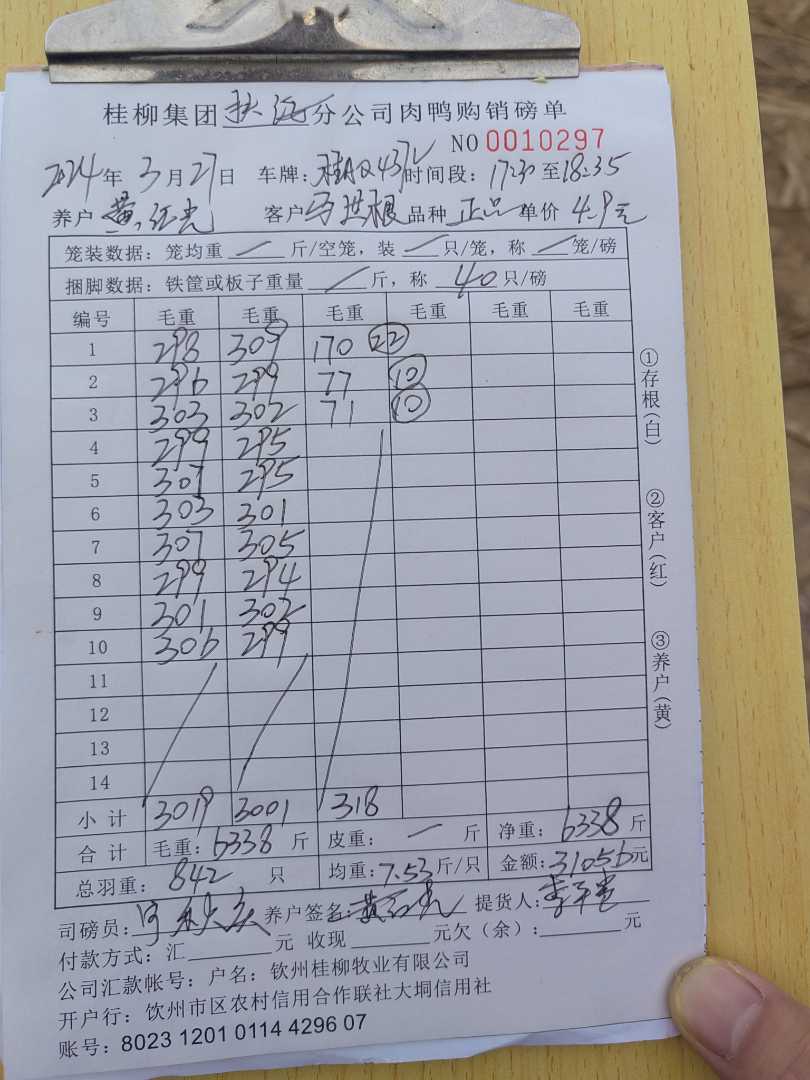 桂柳集团 分公司肉鸭购销磅单
NO 0010297
2024年 3月27日 车牌: 时间段: 17:30至18:35
养户 黄红光 客户 马洪根 品种 正品 单价 4.9元
笼装数据: 笼均重 / 斤/空笼, 装 / 只/笼, 称 / 笼/磅
捆脚数据: 铁筐或板子重量 / 斤, 称 40 只/磅
编号 毛重 毛重 毛重 毛重 毛重 毛重
1 298 309 170 22
2 296 299 77 10
3 303 302 71 10
4 299 295
5 307 295
6 303 301
7 307 305
8 299 294
9 301 302
10 306 299
11
12
13
14
小计 3019 3001 318
合计 毛重: 6338 斤 皮重: 一 斤 净重: 6338 斤
总羽重: 842 只 均重: 7.53斤/只 金额: 31056元
司磅员: 养户签名: 黄红光 提货人:
付款方式: 汇 元 收现 元 欠(余): 元
公司汇款帐号: 户名: 钦州桂柳牧业有限公司
开户行: 钦州市区农村信用合作联社大垌信用社
账号: 8023 1201 0114 4296 07
①存根(白)
②客户(红)
③养户(黄)